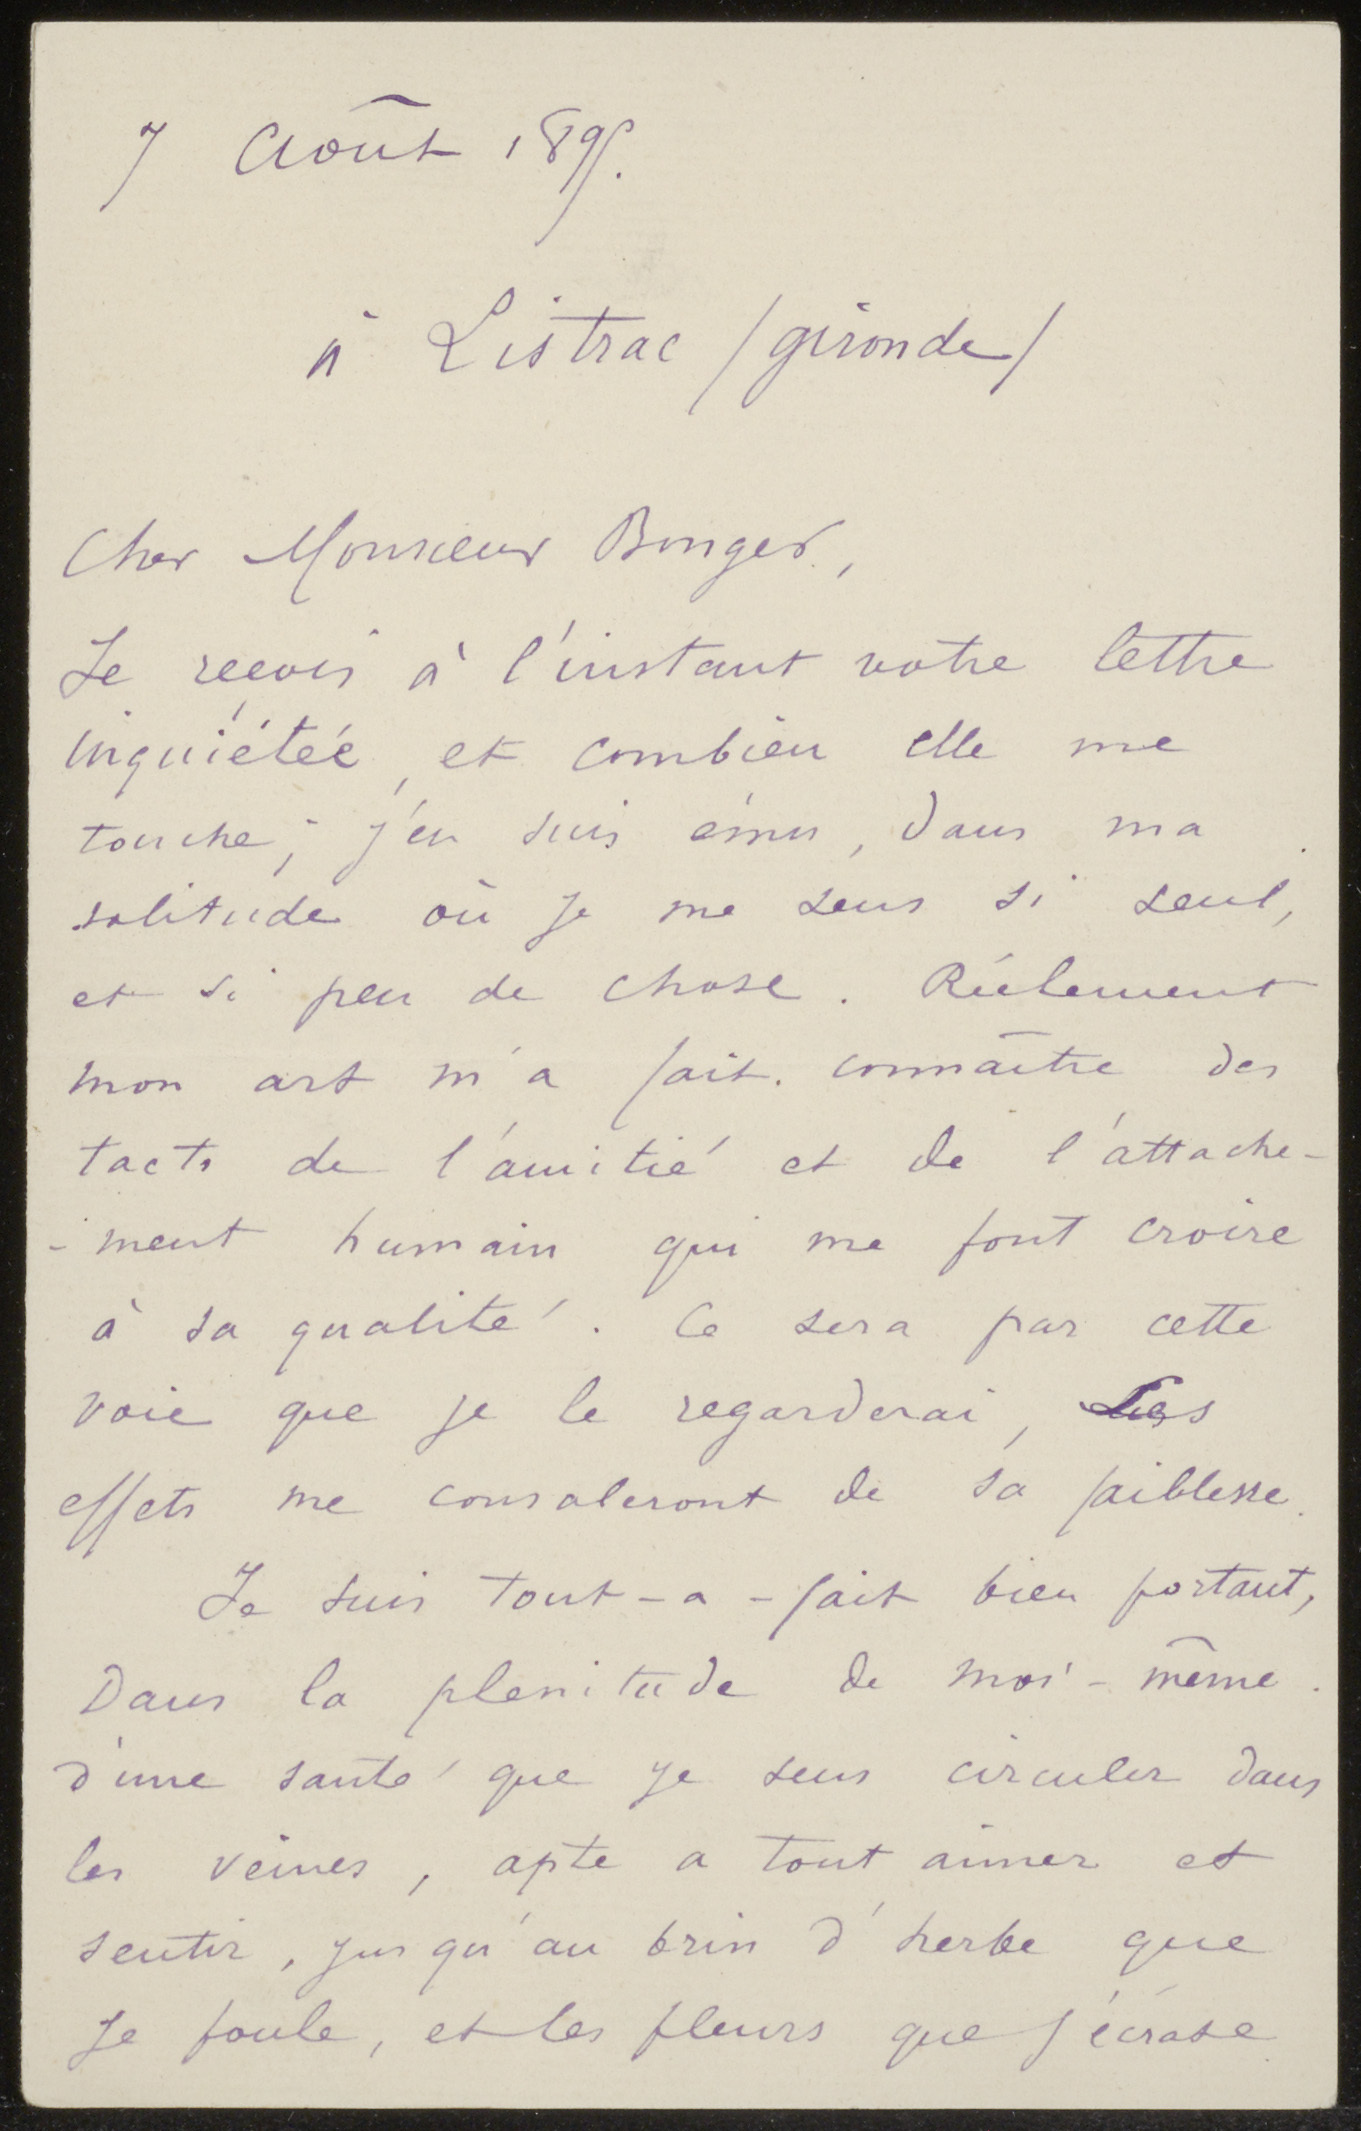 7 Août 1895.
à Listrac /gironde/
Cher Monsieur Bonger,
Je reçois à l'instant votre lettre
inquiétée, et combien elle me
touche; j'en suis ému, dans ma
solitude où je me sens si seul,
et si peu de chose. Réelement
mon art m'a fait connaître des
tacts de l'amitié et de l'attache-
-ment humain qui me font croire
à sa qualité. Ce sera par cette
voie que je le regarderai, Les
effets me consoleront de sa faiblesse.
Je suis tout-a-fait bien portant,
Dans la plenitude de moi-même.
d'une santé que je sens circuler dans
les veines, apte a tout aimer et
sentir, jusqu'au brin d'herbe que
je foule, et les fleurs que j'écrase